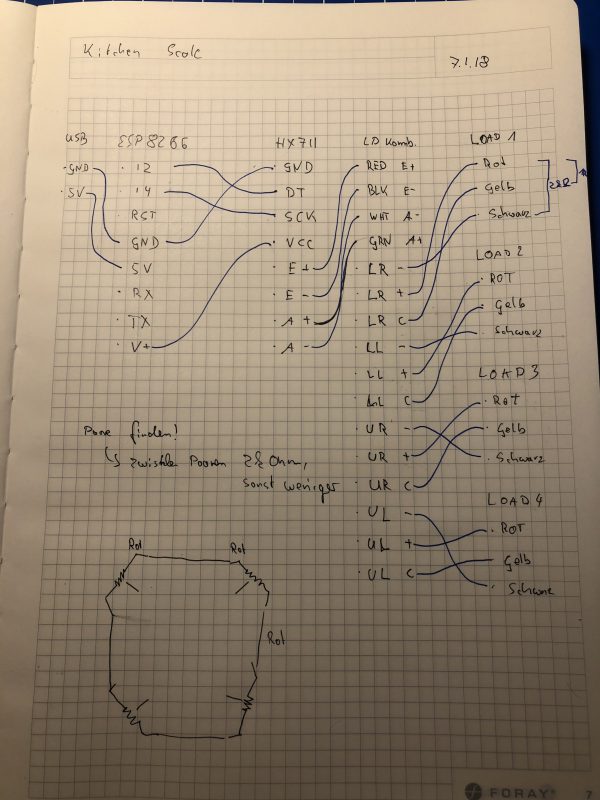 Kitchen Scale
7.1.18
USB ESP8266 HX711 LD Komb. LOAD 1
GND 12 GND RED E+ Rot
5V 14 DT BLK E- Gelb
RST SCK WHT A- Schwarz
GND VCC GRN A+
LOAD 2
5V E+ LR - ROT
RX E- LR + Gelb
TX A+ LR C Schwarz
V+ A- LL -
LL + LOAD 3
LL C ROT
UR - Gelb
UR + Schwarz
UR C
LOAD 4
UL - ROT
UL + Gelb
UL C Schwarz
Paare finden!
Paaren Ohm,
sonst weniger
Rot Rot
Rot
FORAY 7